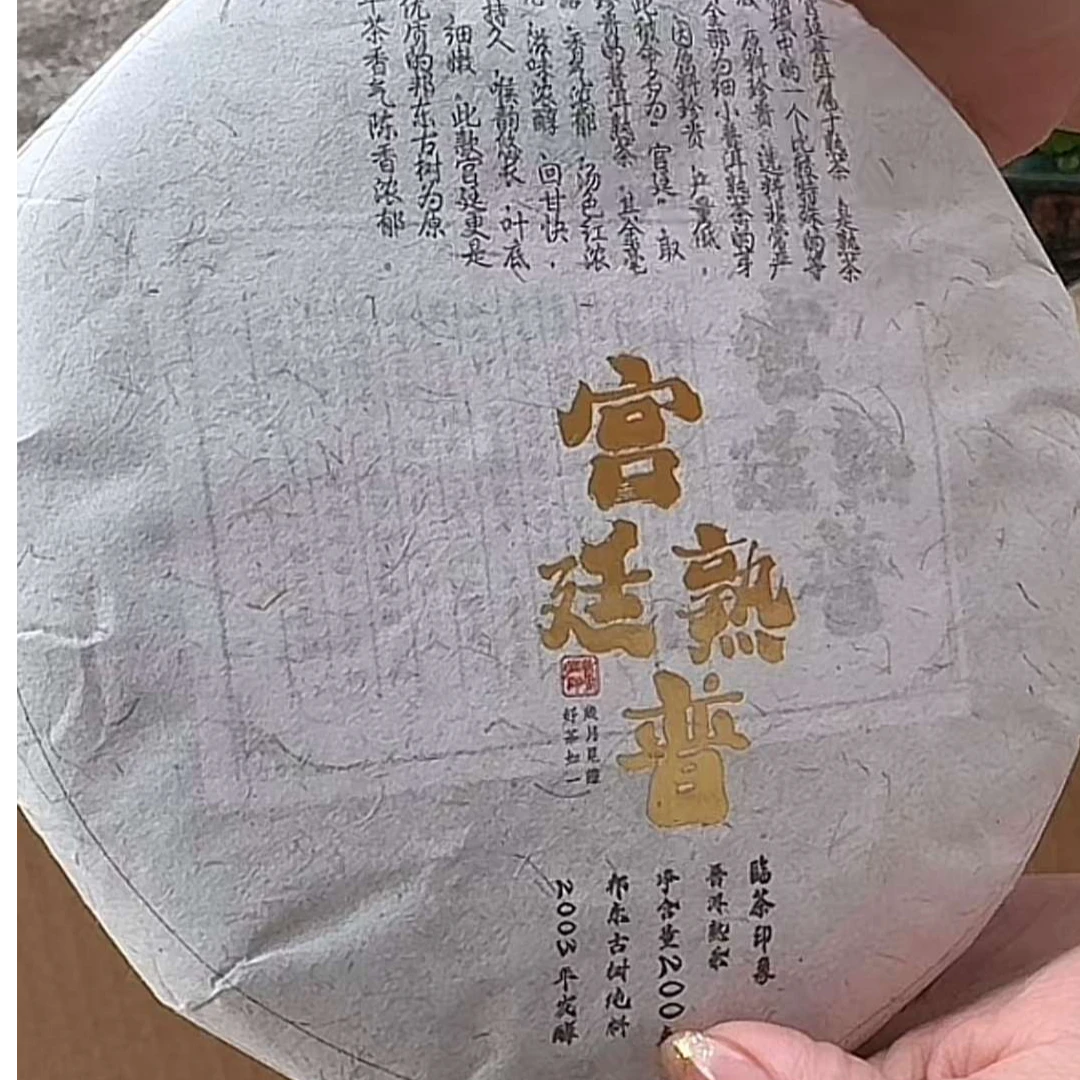 宫廷普洱属于熟茶 是熟茶
领域中的一个比较特殊的等
原料珍贵 选料非常严
全部为细小普洱熟茶的芽
因原料珍贵 产量低，
此被命名为“宫廷”取
珍贵的普洱熟茶 其金毫
香气浓郁 汤色红浓
滋味浓醇 回甘快，
持久 喉韵悠长 叶底
细嫩 此款宫廷更是
优质的邦东古树为原
茶香气陈香浓郁
宫廷
熟普
岁月见证
好茶如一
临茶印象
普洱熟茶
净含量200
邦东古树纯料
2003年发酵